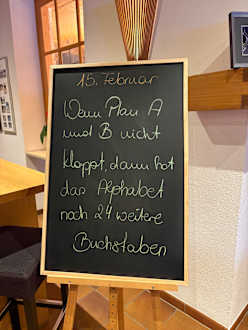 15. Februar
Wenn Plan A
und B nicht
klappt, dann hat
das Alphabet
noch 24 weitere
Buchstaben